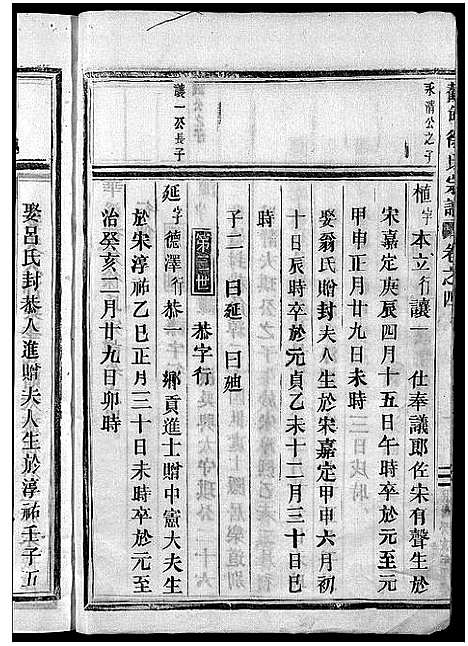 徐氏宗譜 卷之四
永清公之子
植字本立行讓一 仕奉議郎佐宋有聲生於
宋嘉定庚辰四月十五日午時卒於元至元
甲申正月廿九日未時
娶翁氏贈封夫人生於宋嘉定甲申六月初
十日辰時卒於元貞乙未十二月三十日巳
時
子二 曰延 曰廸
第 世 恭字行
讓一公長子
延字德澤行恭一 鄉貢進士贈中憲大夫生
於宋淳祐乙巳正月三十日未時卒於元至
治癸亥二月廿九日卯時
娶呂氏封恭人進贈夫人生於淳祐壬子五